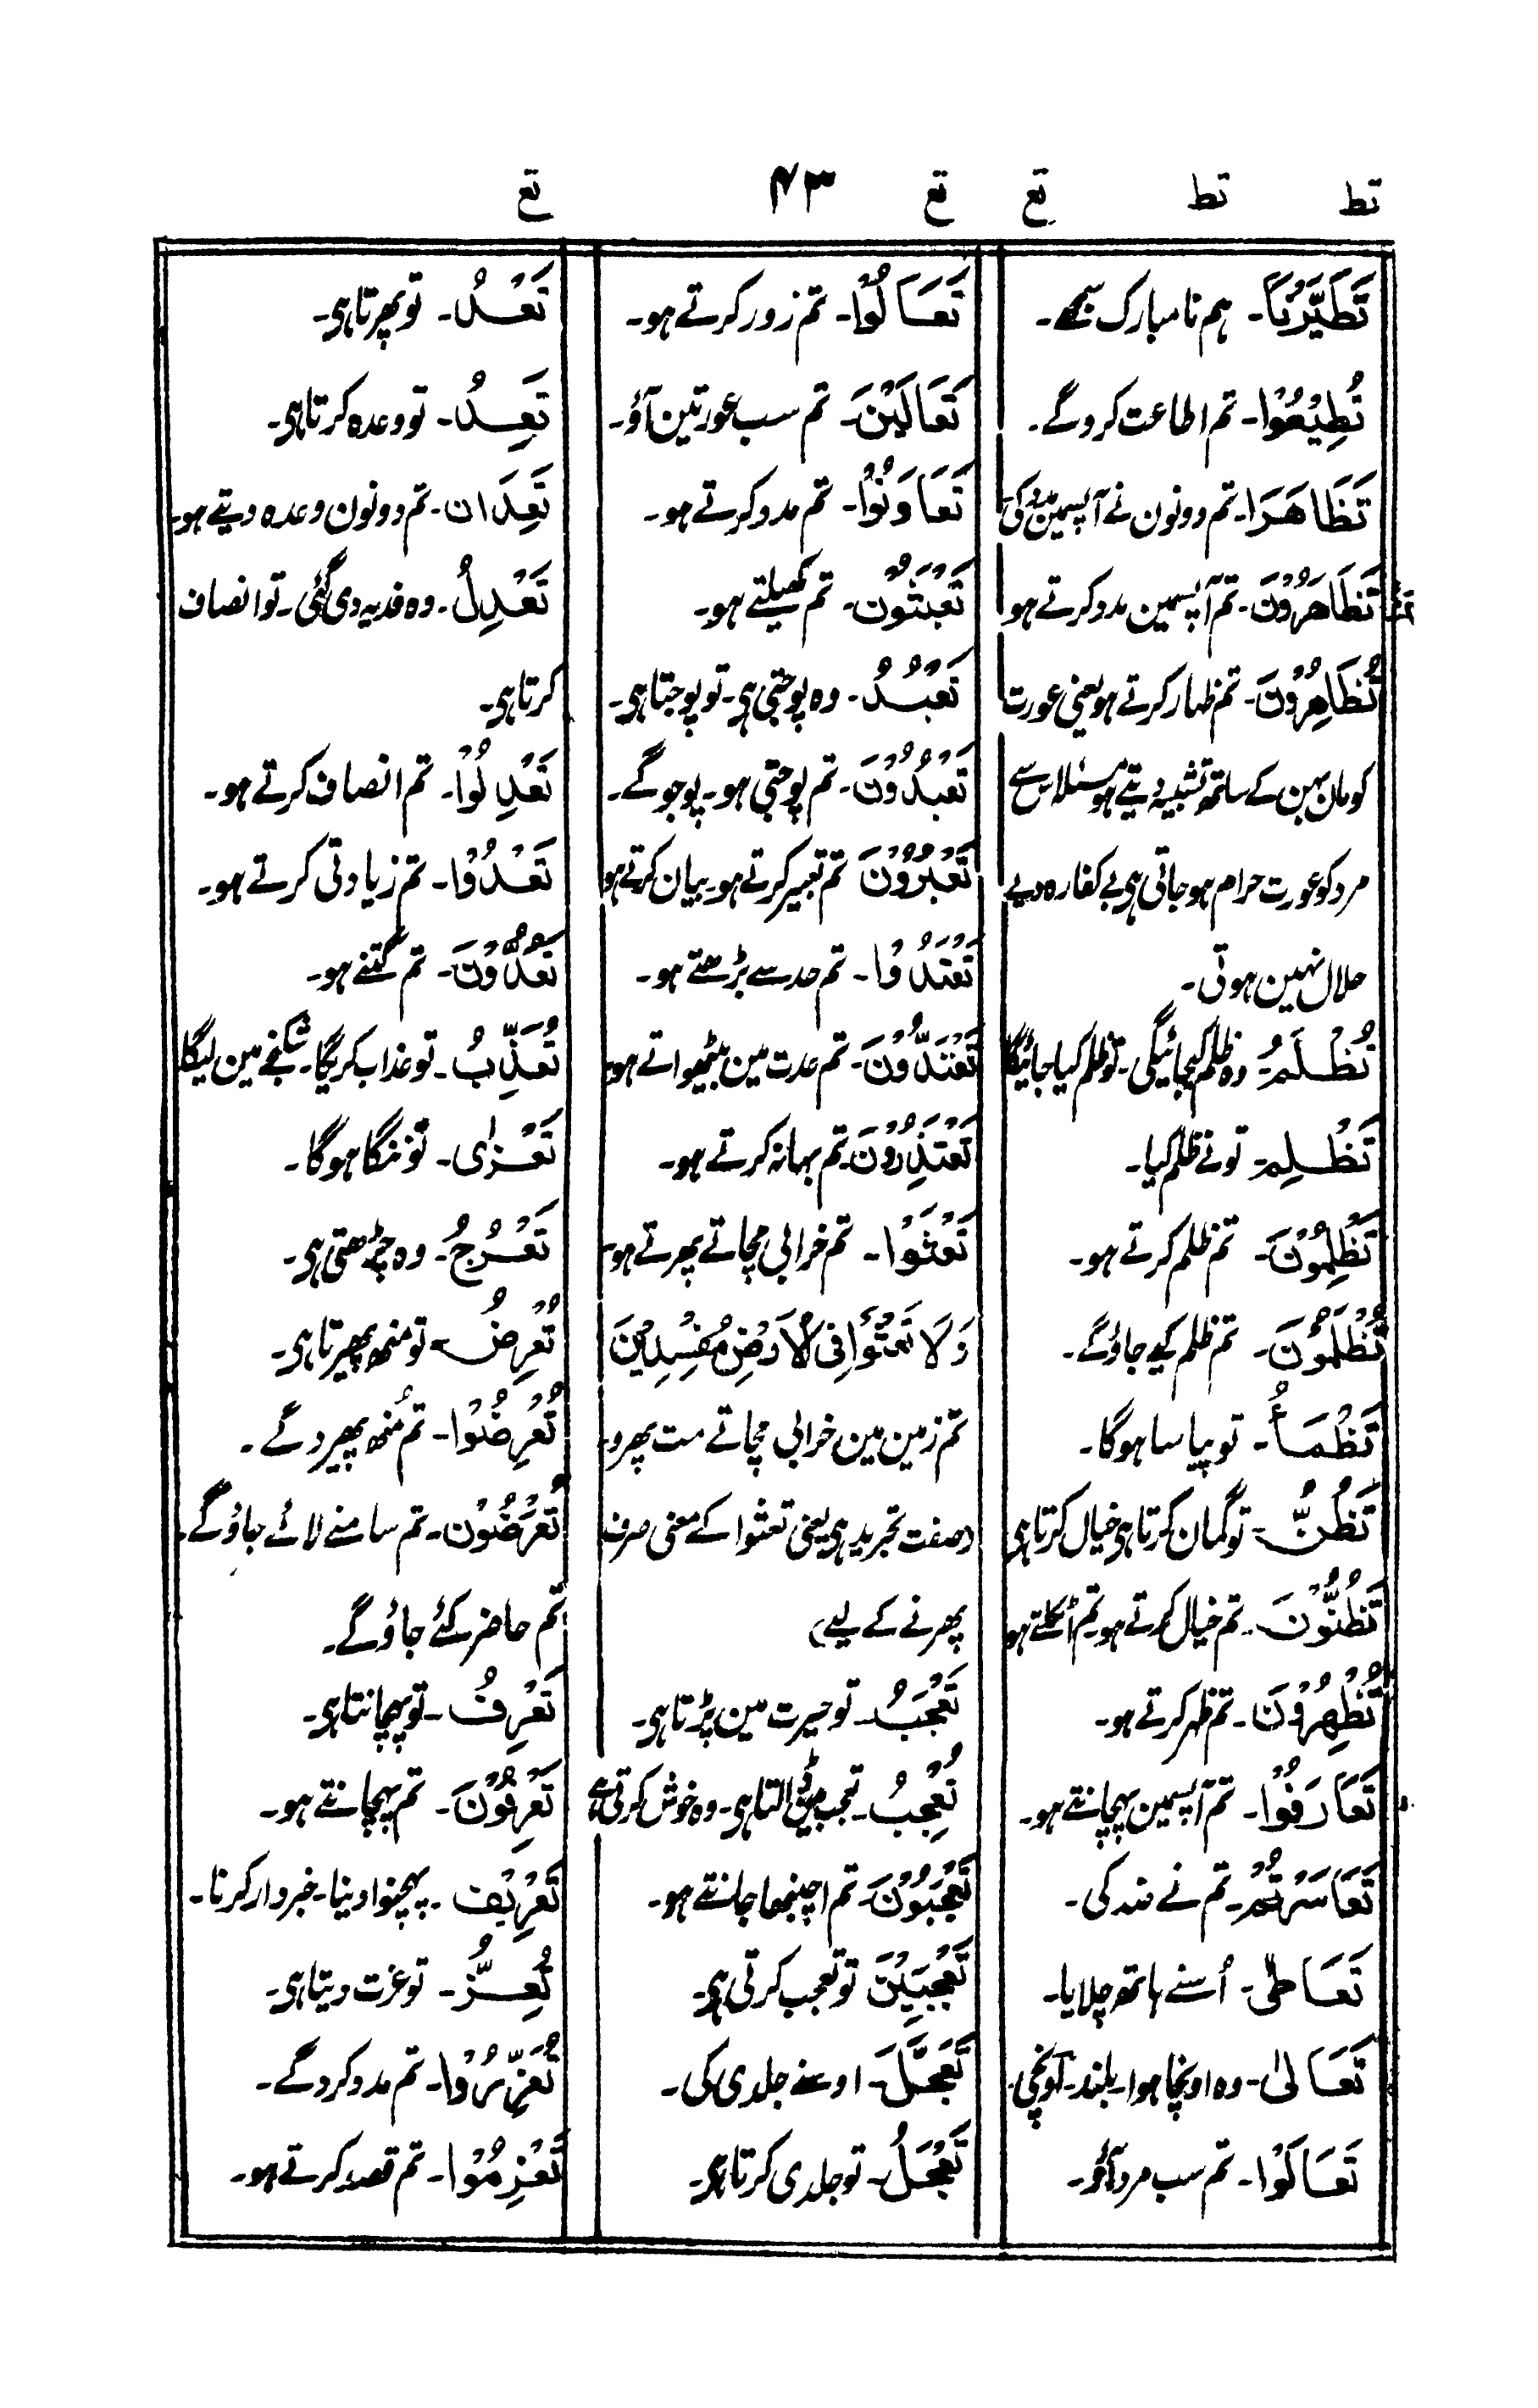 تط تط تع تع ۴۳ تع
تَطَيَّرْنَا۔ ہم نا مبارک سمجھے۔
تُطِيْعُوْا۔ تم اطاعت کروگے۔
تَظَاهَرَا۔ تم دونون نے آپسمین مدد کی
تَظَاهَرُوْنَ۔ تم آپسمین مدد کرتے ہو
تُظَاهِرُوْنَ۔ تم ظہار کرتے ہو یعنی عورت
کو مان بہن کے ساتھ تشبیہ دیتے ہو مسئلہ اس سے
مرد کو عورت حرام ہو جاتی ہی بے کفارہ دیے
حلال نہین ہوتی۔
تُظْلَمُ۔ وہ ظلم کیجائیگی۔ تو ظلم کیا جائیگا
تَظْلِمْ۔ تونے ظلم کیا۔
تَظْلِمُوْنَ۔ تم ظلم کرتے ہو۔
تُظْلَمُوْنَ۔ تم ظلم کیے جاؤگے۔
تَظْمَأُ۔ تو پیاسا ہوگا۔
تَظُنُّ۔ تو گمان کرتا ہی خیال کرتا ہی
تَظُنُّوْنَ۔ تم خیال کرتے ہو۔ تم اٹکلتے ہو
تُظْهِرُوْنَ۔ تم ظہر کرتے ہو۔
تَعَارَفُوْا۔ تم آپسمین پہچانتے ہو۔
تَعَاسَرْتُمْ۔ تم نے ضد کی۔
تَعَاطٰى۔ اُسنے ہاتھ چلایا۔
تَعَالٰى۔ وہ اونچا ہوا۔ بلند۔ اونچی۔
تَعَالَوْا۔ تم سب مرد آؤ۔
تَعَالُوْا۔ تم زور کرتے ہو۔
تَعَالَيْنَ۔ تم سب عورتین آؤ۔
تَعَاوَنُوْا۔ تم مدد کرتے ہو۔
تَعْبَثُوْن۔ تم کھیلتے ہو۔
تَعْبُدُ۔ وہ پوجتی ہی۔ تو پوجتا ہی۔
تَعْبُدُوْنَ۔ تم پوجتے ہو۔ پوجوگے۔
تَعْبُرُوْنَ تم تعبیر کرتے ہو۔ بیان کرتے ہو
تَعْتَدُوْا۔ تم حد سے بڑھتے ہو۔
تَعْتَدُّوْنَ۔ تم عدت مین بٹھواتے ہو۔
تَعْتَذِرُوْنَ۔ تم بہانہ کرتے ہو۔
تَعْثَوْا۔ تم خرابی مچاتے پھرتے ہو۔
وَلَا تَعْثَوْا فِى الْاَرْضِ مُفْسِدِيْنَ
تم زمین مین خرابی مچاتے مت پھرو۔
(صفت تجرید ہی یعنی تعثوا کے معنی صرف
پھرنے کے لیے)
تَعْجَبُ۔ تو حیرت مین پڑتا ہی۔
تُعْجِبُ۔ تعجب مین ڈالتا ہی۔ وہ خوش کرتی ہے
تَعْجَبُوْنَ۔ تم اچنبھا جانتے ہو۔
تَعْجَبِيْنَ تو تعجب کرتی ہی۔
تَعَجَّلَ۔ اوسنے جلدی کی۔
تَعْجَلُ۔ تو جلدی کرتا ہی۔
تَعْدُ۔ تو پھرتا ہی۔
تَعِدُ۔ تو وعدہ کرتا ہی۔
تَعِدَان۔ تم دونون وعدہ دیتے ہو۔
تَعْدِلُ۔ وہ فدیہ دی گئی۔ تو انصاف
کرتا ہی۔
تَعْدِلُوْا۔ تم انصاف کرتے ہو۔
تَعْدُوْا۔ تم زیادتی کرتے ہو۔
تَعُدُّوْنَ۔ تم گنتے ہو۔
تُعَذِّبُ۔ تو عذاب کریگا۔ شکنجے مین لیگا
تَعْرٰى۔ تو ننگا ہوگا۔
تَعْرُجُ۔ وہ چڑھتی ہی۔
تُعْرِضُ۔ تو منھ پھیرتا ہی۔
تُعْرِضُوْا۔ تم مُنھ پھیروگے۔
تُعْرَضُوْن۔ تم سامنے لائے جاؤگے۔
تم حاضر کئے جاؤگے۔
تَعْرِفُ۔ تو پہچانتا ہی۔
تَعْرِفُوْنَ۔ تم پہچانتے ہو۔
تَعْرِيْف۔ پہچنوا دینا۔ خبردار کرنا۔
تُعِزُّ۔ تو عزت دیتا ہی۔
تُعَزِّرُوْا۔ تم مدد کروگے۔
تَعْزِمُوْا۔ تم قصد کرتے ہو۔